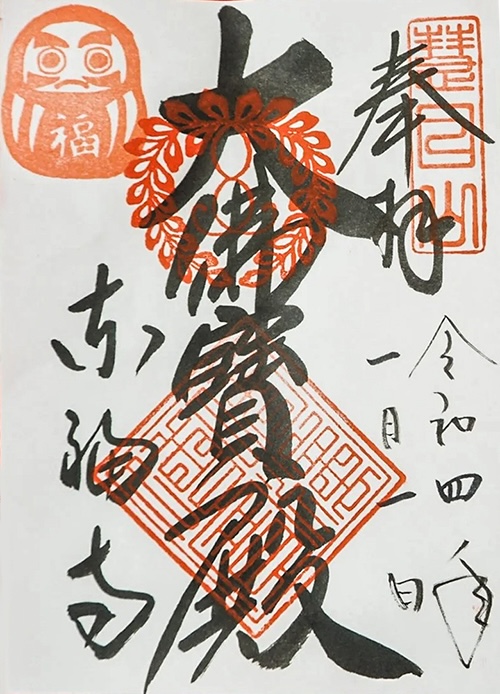 慧日山
奉拝
令和四年
一月一日
大佛寶殿
東福寺
福